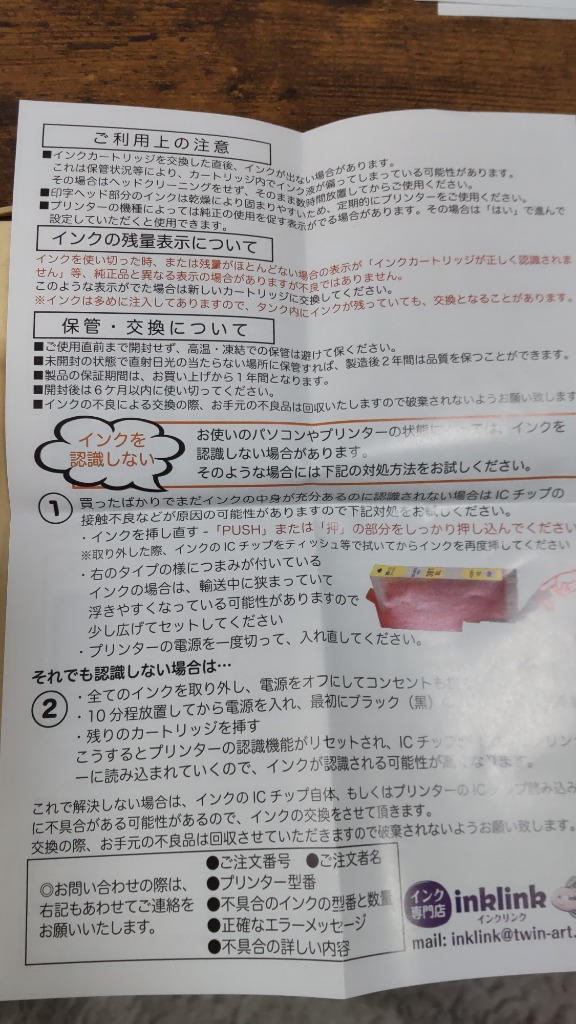 ご利用上の注意
■インクカートリッジを交換した直後、インクが出ない場合があります。
これは保管状況等により、カートリッジ内でインク液が偏ってしまっている可能性があります。
その場合はヘッドクリーニングをせず、そのまま数時間放置してからご使用ください。
■印字ヘッド部分のインクは乾燥により固まりやすいため、定期的にプリンターをご使用ください。
■プリンターの機種によっては純正の使用を促す表示がでる場合があります。その場合は「はい」で進んで
設定していただくと使用できます。
インクの残量表示について
インクを使い切った時、または残量がほとんどない場合の表示が「インクカートリッジが正しく認識されま
せん」等、純正品と異なる表示の場合がありますが不良ではありません。
このような表示がでた場合は新しいカートリッジに交換してください。
※インクは多めに注入してありますので、タンク内にインクが残っていても、交換となることがあります。
保管・交換について
■ご使用直前まで開封せず、高温・凍結での保管は避けて保ください。
■未開封の状態で直射日光の当たらない場所に保管すれば、製造後２年間は品質を保つことができます。
■製品の保証期間は、お買い上げから１年間となります。
■開封後は６ケ月以内に使い切ってください。
■インクの不良による交換の際、お手元の不良品は回収いたしますので破棄されないようお願い致します
インクを
認識しない
お使いのパソコンやプリンターの状態によっては、インクを
認識しない場合があります。
そのような場合には下記の対処方法をお試しください。
① 買ったばかりでまだインクの中身が充分あるのに認識されない場合は IC チップの
接触不良などが原因の可能性がありますので下記対処をお試しください。
・インクを挿し直す -「PUSH」または「押」の部分をしっかり押し込んでください
※取り外した際、インクの IC チップをティッシュ等で拭いてからインクを再度挿してください
・右のタイプの様につまみが付いている
インクの場合は、輸送中に狭まっていて
浮きやすくなっている可能性がありますので
少し広げてセットしてください
・プリンターの電源を一度切って、入れ直してください。
それでも認識しない場合は…
② ・全てのインクを取り外し、電源をオフにしてコンセントも
・10 分程放置してから電源を入れ、最初にブラック（黒）
・残りのカートリッジを挿す
こうするとプリンターの認識機能がリセットされ、IC チップが
ーに読み込まれていくので、インクが認識される可能性が高くなります。
これで解決しない場合は、インクの IC チップ自体、もしくはプリンターの IC チップ読み込み
に不具合がある可能性があるので、インクの交換をさせて頂きます。
交換の際、お手元の不良品は回収させていただきますので破棄されないようお願い致します。
◎お問い合わせの際は、
右記もあわせてご連絡を
お願いいたします。
●ご注文番号 ●ご注文者名
●プリンター型番
●不具合のインクの型番と数量
●正確なエラーメッセージ
●不具合の詳しい内容
インク
専門店
inklink
インクリンク
mail: inklink@twin-art.